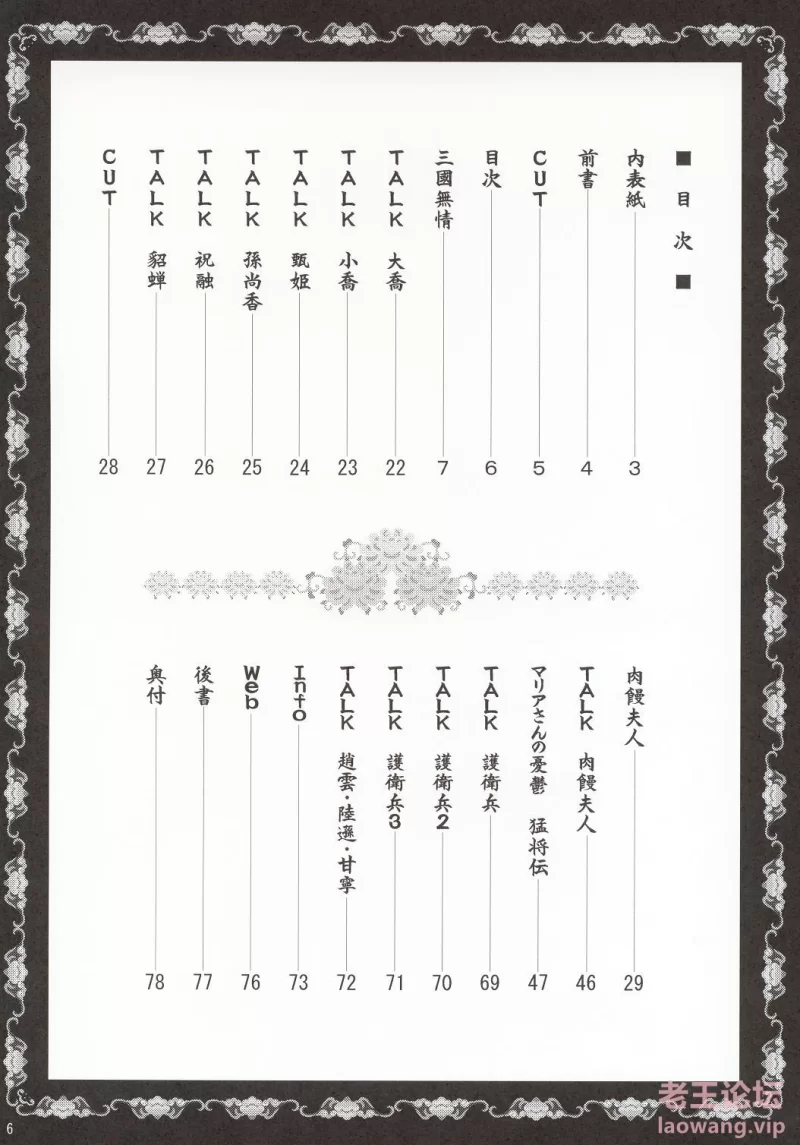 ■ 目次 ■
内表紙 3
前書 4
CUT 5
目次 6
三國無情 7
TALK 大喬 22
TALK 小喬 23
TALK 甄姫 24
TALK 孫尚香 25
TALK 祝融 26
TALK 貂蝉 27
CUT 28
肉饅夫人 29
TALK 肉饅夫人 46
マリアさんの憂鬱 猛将伝 47
TALK 護衛兵 69
TALK 護衛兵2 70
TALK 護衛兵3 71
TALK 趙雲・陸遜・甘寧 72
Info 73
Web 76
後書 77
奥付 78
6
老王论坛
laowang.vip